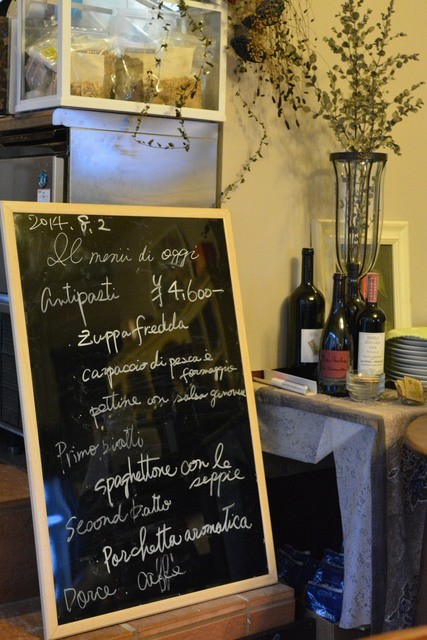 2014.8.2
Il menù di oggi
Antipasti ¥4.600-
zuppa fredda
carpaccio di pesca e
formaggio
pettine con salsa genovese
Primo piatto
spaghettone con le
seppie
Second piatto
Porchetta aromatica
Dorce caffè